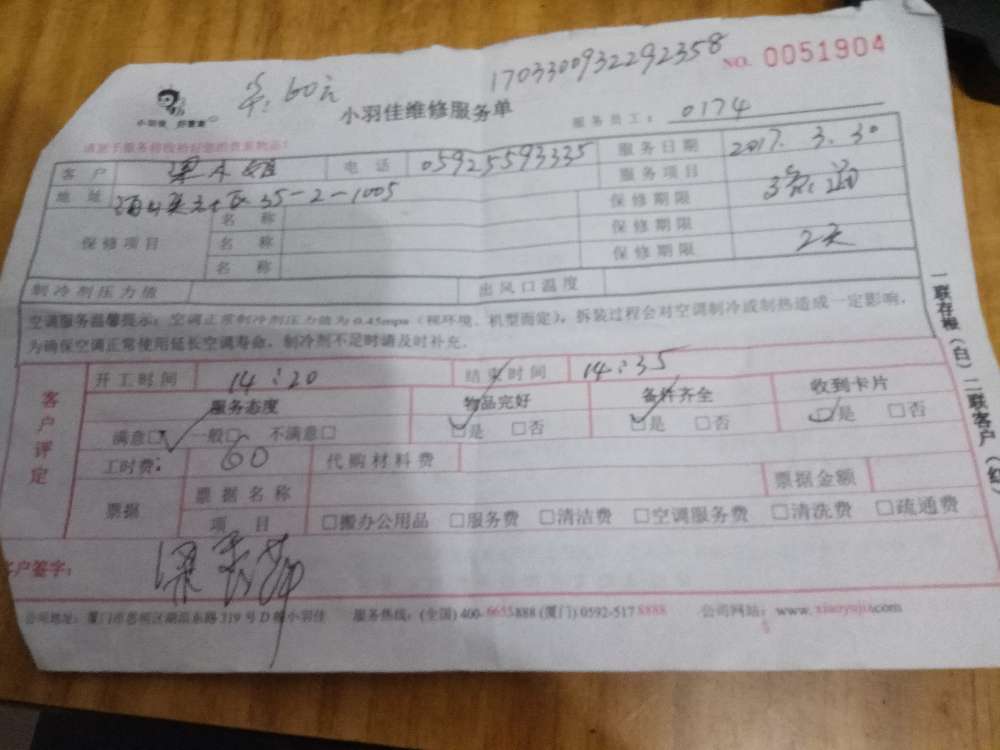 1703300932292358
60元
NO. 0051904
小羽佳维修服务单
服务员工: 0174
小羽佳
客户 电话 05925593335 服务日期 2017. 3. 30
地址 35-2-1005 服务项目
保修项目 名称 保修期限
名称 保修期限
名称 保修期限 2天
制冷剂压力值 出风口温度
空调服务温馨提示: 空调正常制冷剂压力值为 0.45mpa (视环境、机型而定), 拆装过程会对空调制冷或制热造成一定影响,
为确保空调正常使用延长空调寿命, 制冷剂不足时请及时补充。
一联存根(白)二联客户(红)
客户评定
开工时间 14:20 结束时间 14:35
服务态度 物品完好 备件齐全 收到卡片
满意□ 一般□ 不满意□ □是 □否 □是 □否 □是 □否
工时费: 60 代购材料费
票据 票据名称 票据金额
项目 □搬办公用品 □服务费 □清洁费 □空调服务费 □清洗费 □疏通费
客户签字:
公司地址: 厦门市思明区湖滨东路 319 号 D 幢小羽佳 服务热线: (全国) 400-6655888 (厦门) 0592-5178888 公司网站: www.xiaoyujia.com